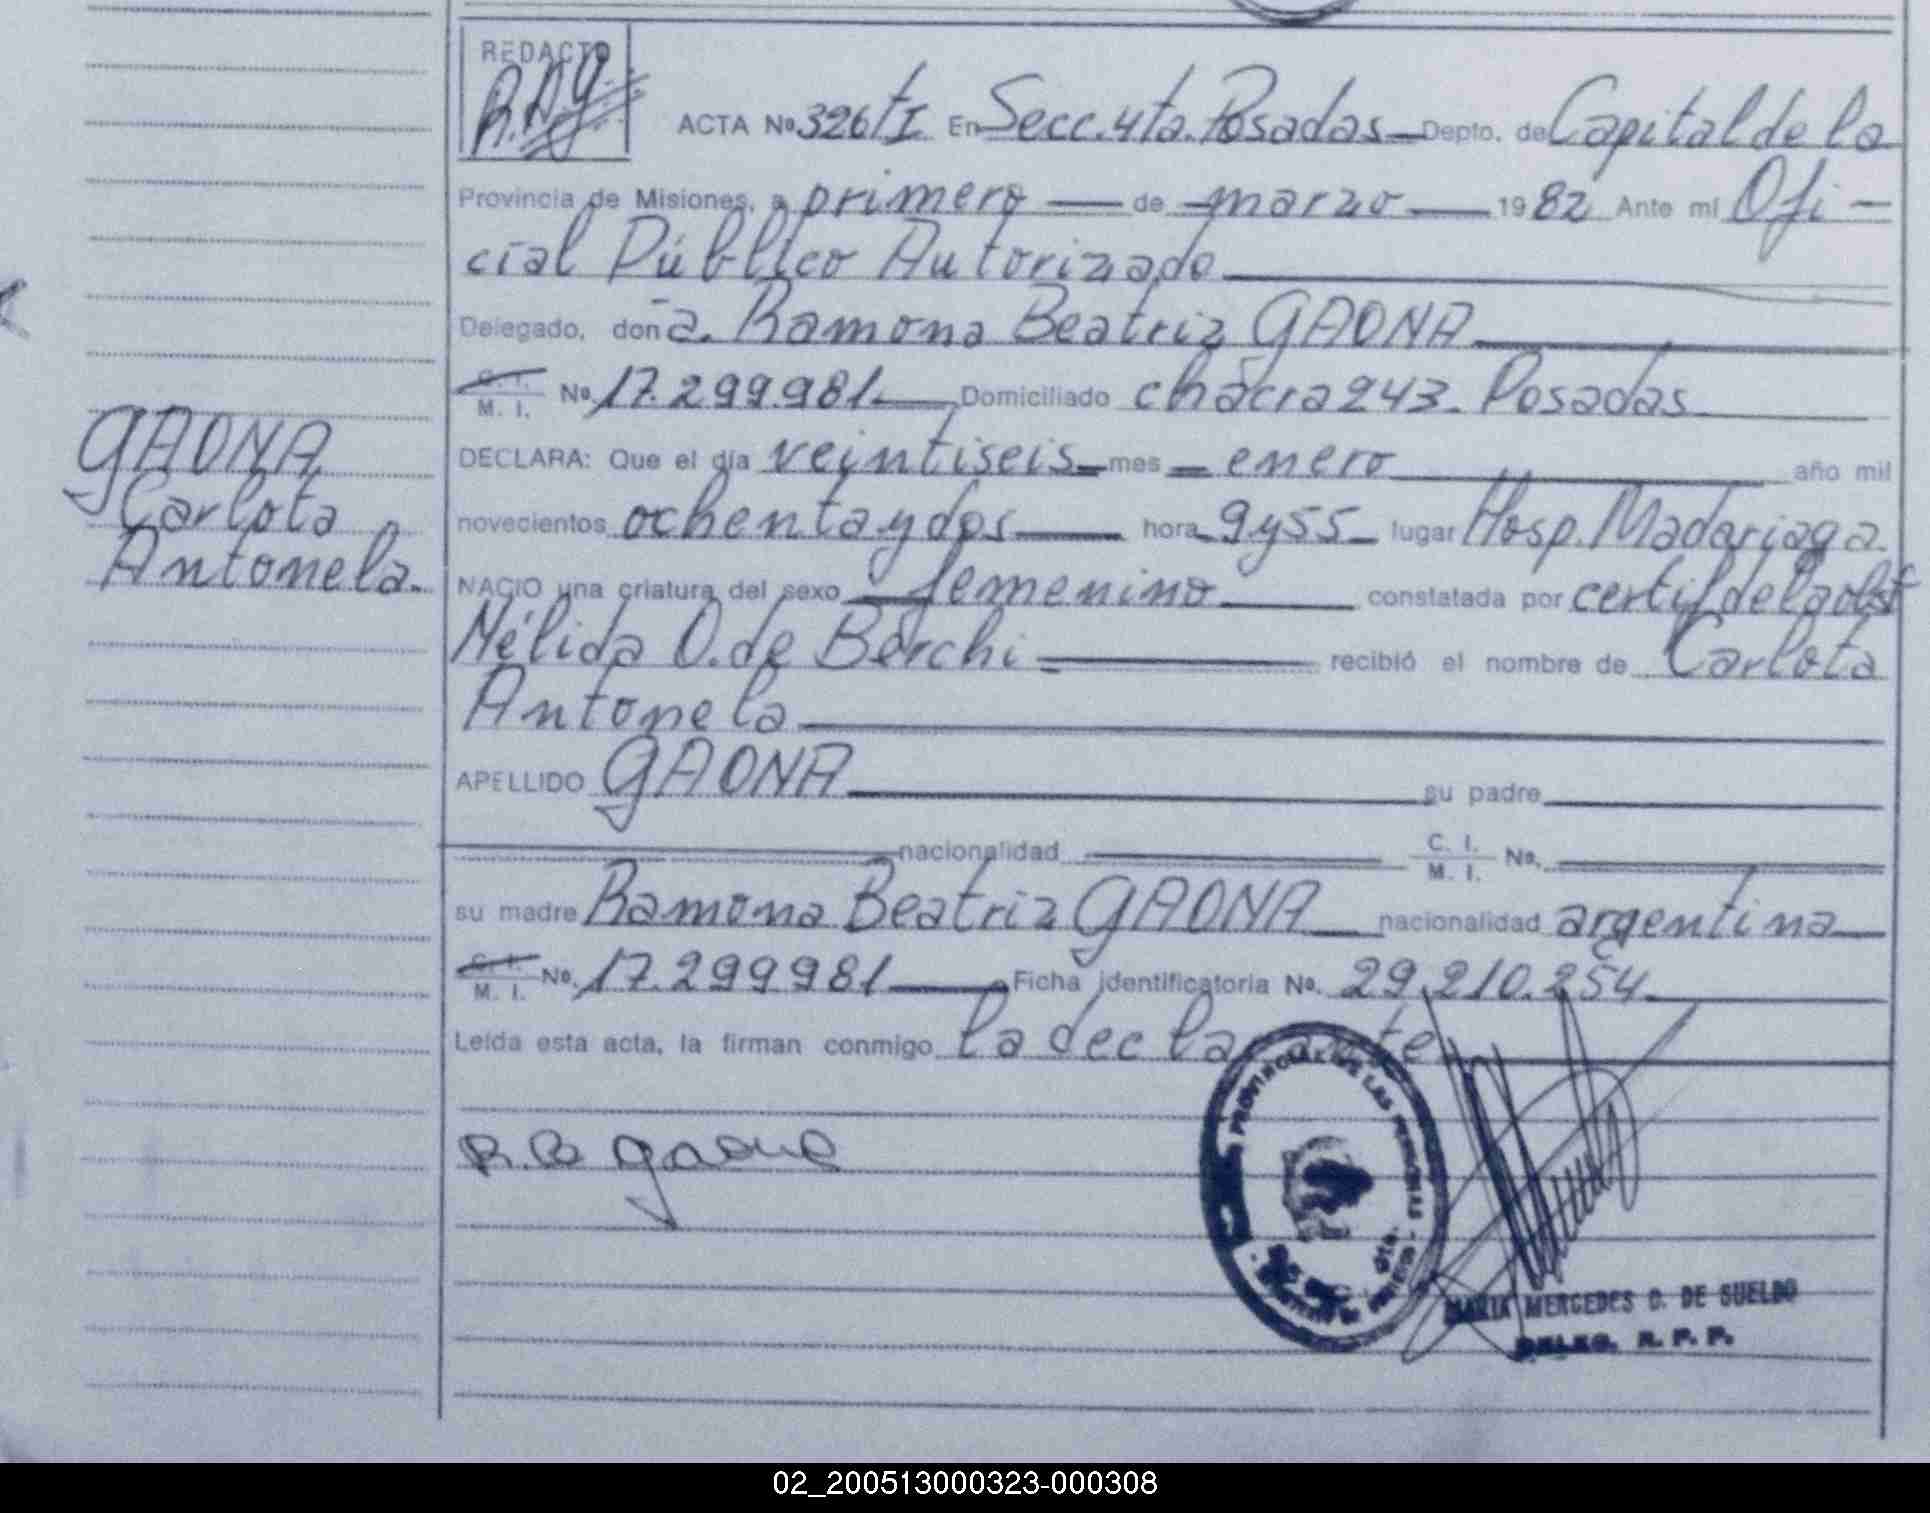 REDACTO
ACTA Nº 326 tI En Secc. 4ta. Posadas Depto. de Capital de la
Provincia de Misiones, a primero de marzo 1982 Ante mi Ofi-
cial Público Autorizado
Delegado, don a. Ramona Beatriz GAONA
C. I. M. I. No. 17.299.981 Domiciliado chacra 243. Posadas
DECLARA: Que el día veintiseis mes enero año mil
novecientos ochenta y dos hora 9 y 55 lugar Hosp. Madariaga.
NACIO una criatura del sexo femenino constatada por certif de la obst
Nélida O. de Berchi recibió el nombre de Carlota
Antonela
APELLIDO GAONA su padre
nacionalidad C. I. M. I. No.
su madre Ramona Beatriz GAONA nacionalidad argentina
C. I. M. I. No. 17.299981 Ficha identificatoria No. 29.210.254
Leída esta acta, la firman conmigo la declarante
R. B. Gaona
PROVINCIAL DE LAS PERSONAS
MARIA MERCEDES D. DE SUELDO
DELEG. R. P. P.
GAONA
Carlota
Antonela.
02_200513000323-000308